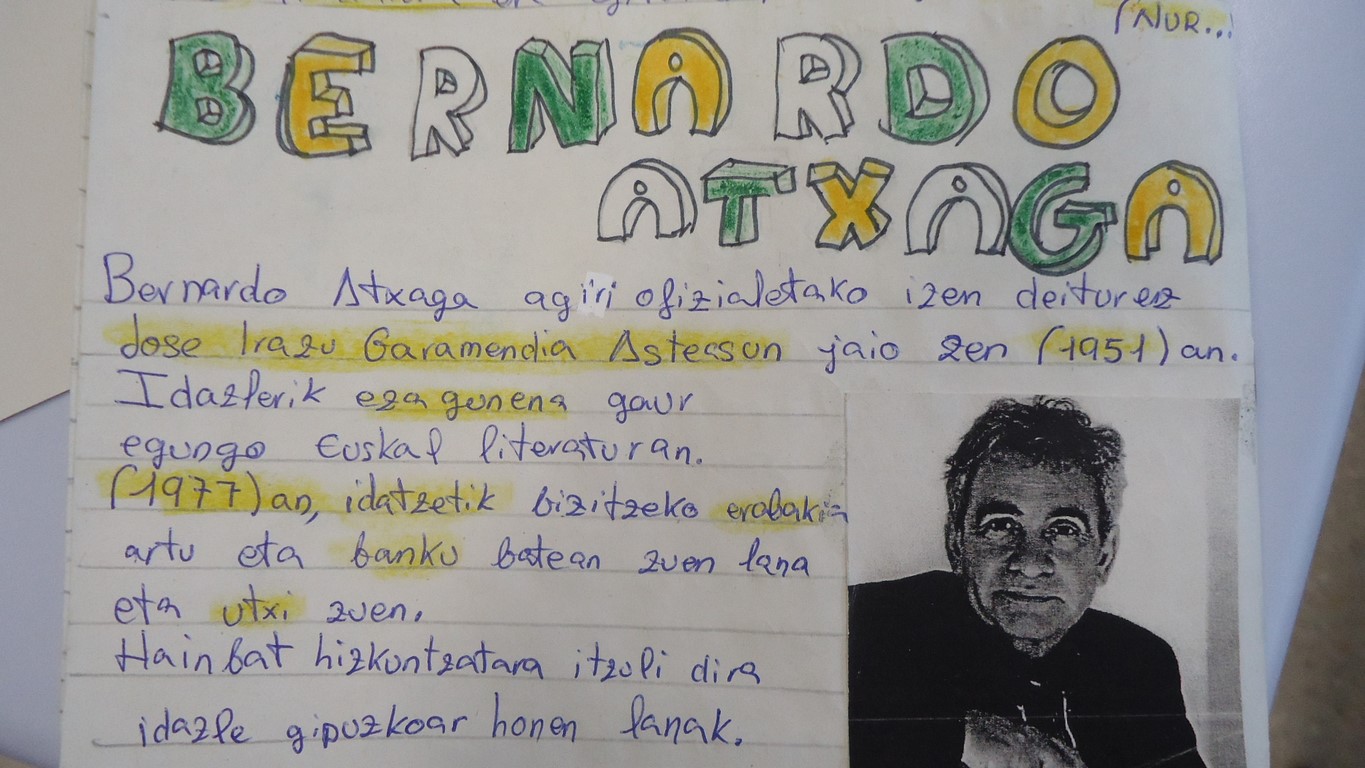 (NUR...
BERNARDO
ATXAGA
Bernardo Atxaga agiri ofizialetako izen deiturez
Jose Irazu Garamendia Asteasun jaio zen (1951)an.
Idazlerik ezagunena gaur
egungo Euskal literaturan.
(1977)an, idatzetik bizitzeko erabakia
artu eta banku batean zuen lana
eta utxi zuen.
Hainbat hizkuntzatara itzuli dira
idazle gipuzkoar honen lanak.